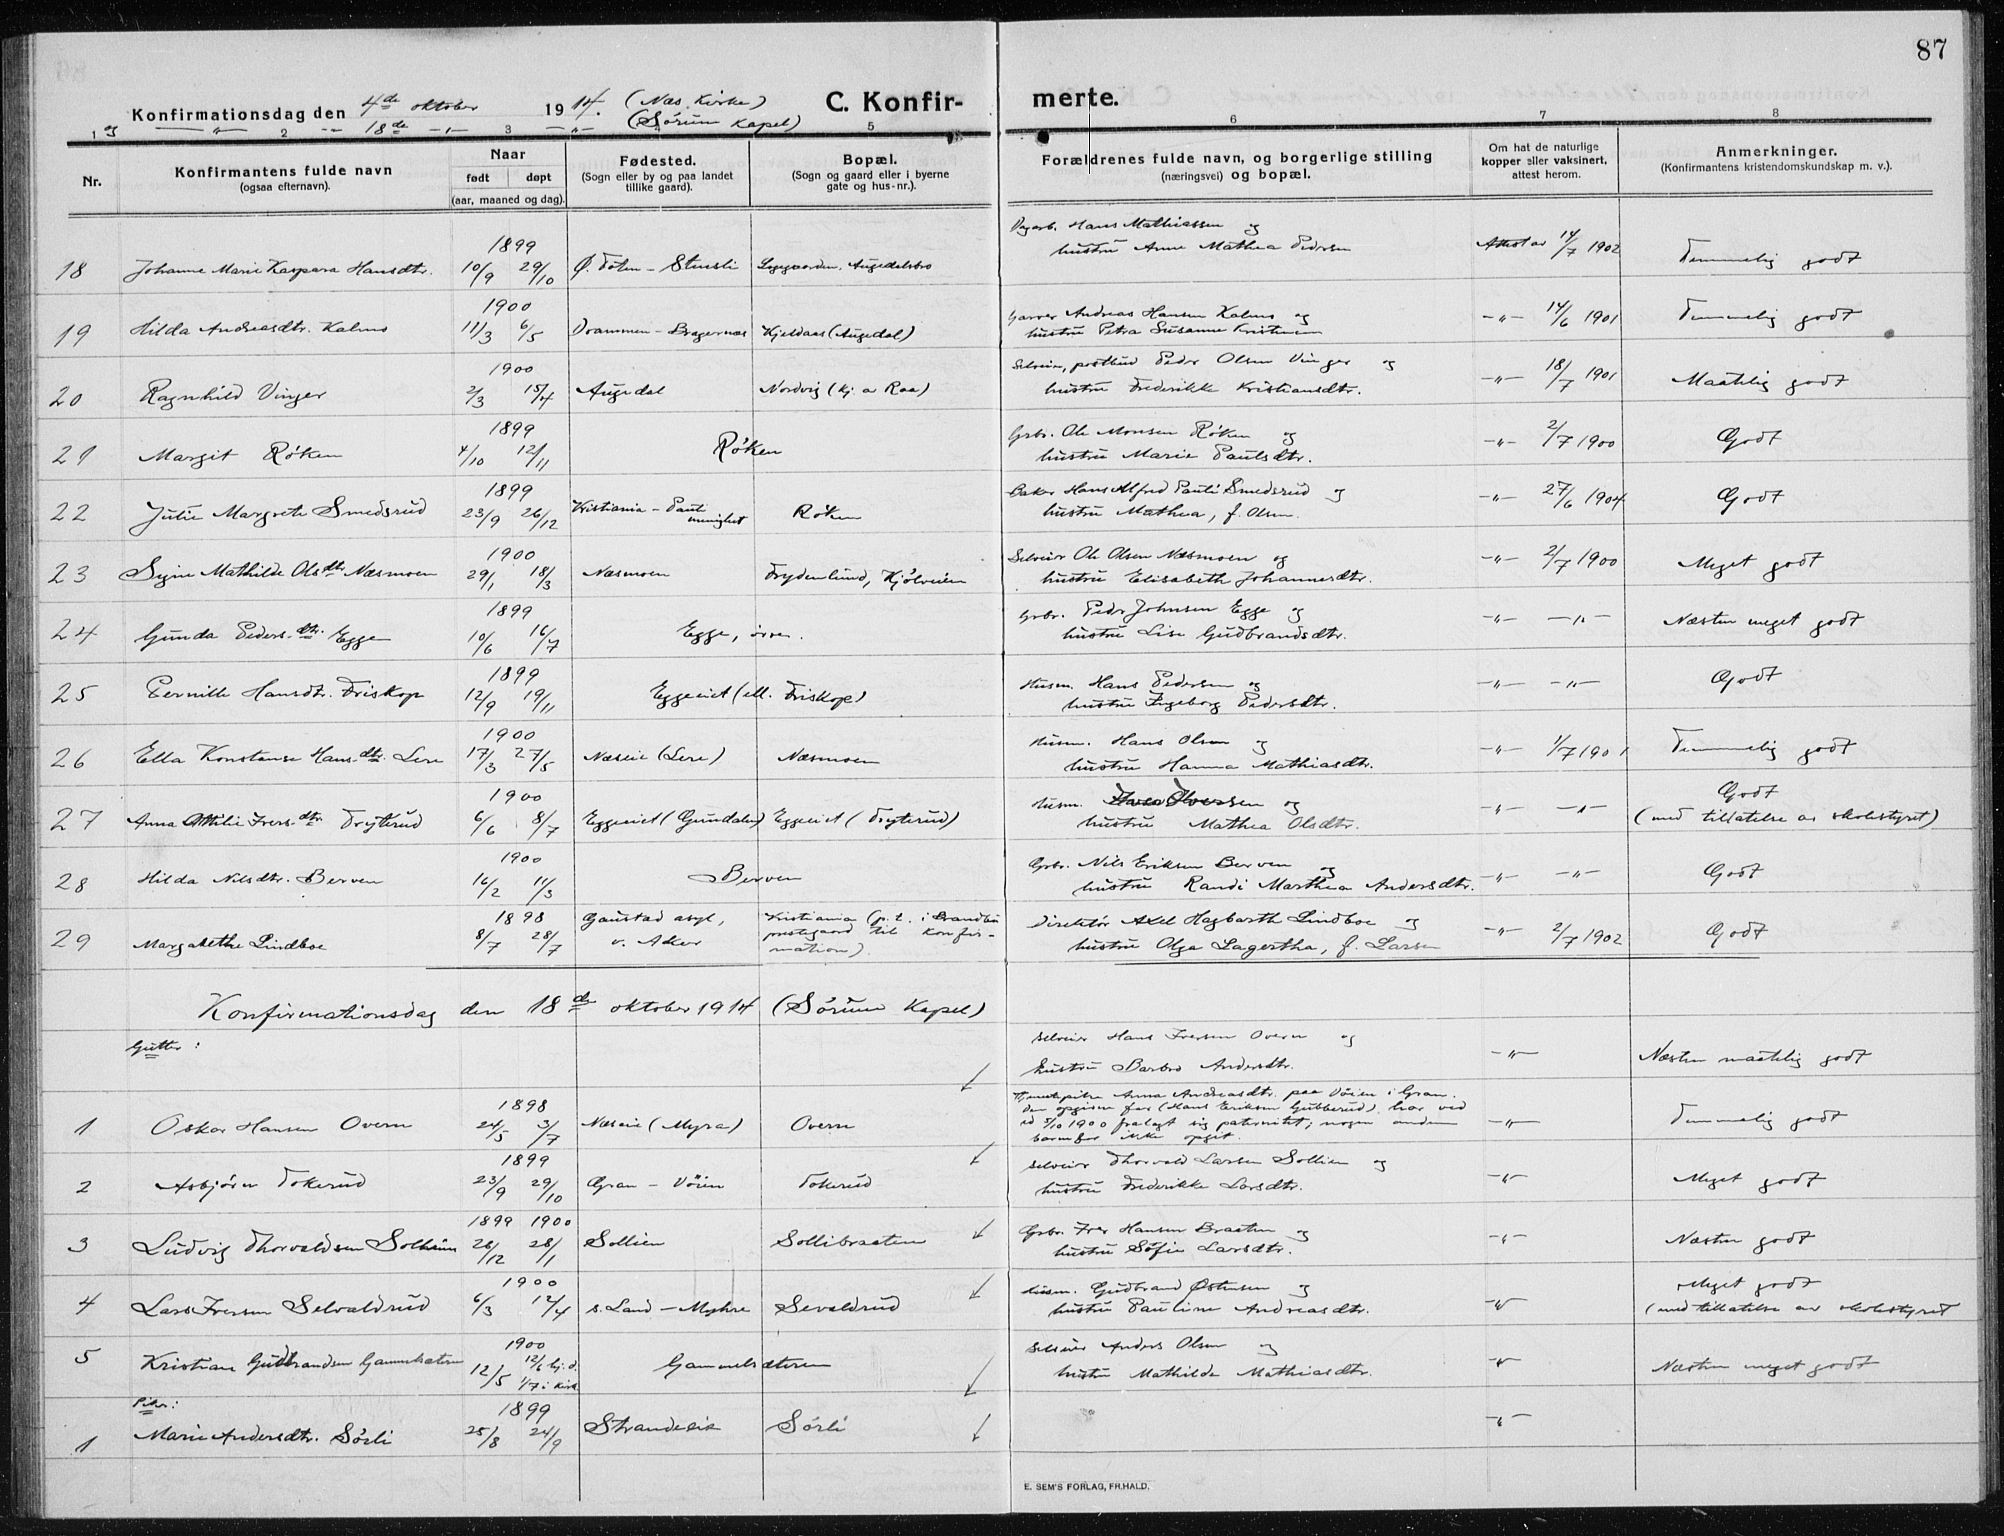 87
Konfirmationsdag den 4de oktober 1914. (Næs Kirke)
og —"— 18de —"— (Sørum Kapel)
C. Konfir- merte.
1 2 3 4 5 6 7 8
Nr.
Konfirmantens fulde navn
(ogsaa efternavn).
Naar
født døpt
(aar, maaned og dag).
Fødested.
(Sogn eller by og paa landet
tillike gaard).
Bopæl.
(Sogn og gaard eller i byerne
gate og hus-nr.).
Forældrenes fulde navn, og borgerlige stilling
(næringsvei) og bopæl.
Om hat de naturlige
kopper eller vaksinert,
attest herom.
Anmerkninger.
(Konfirmantens kristendomskundskap m. v.).
Dagarb. Hans Mathiassen og
hustru Anne Mathea Pedersen
1899
18 Johanne Marie Kaspara Hansdtr. 10/9 29/10 Ø. Toten - Stensli Augedalsbro Attest av 14/7 1902 Temmelig godt
1900
Garver Andreas Hansen Kalnes og
19 Hilda Andreasdtr. Kalnes 11/3 6/5 Drammen - Bragernæs Kjeldaas (Augedal) —"— 14/6 1901 Temmelig godt
hustru Petra Susanne Kristensen
1900
Selveier, postbud Peder Olsen Vinger og
20 Ragnhild Vinger 2/3 15/4 Augedal Nordvig (kj. a Raa) —"— 18/7 1901 Maatelig godt
hustru Frederikke Kristiansdtr.
1899
Grbr. Ole Monsen Røken og
21 Margit Røken 4/10 12/11 Røken —"— 2/7 1900 Godt
hustru Marie Paulsdtr.
1899
Baker Hans Alfred Pauli Smedsrud og
22 Julie Margrete Smedsrud 23/9 26/12 Kristiania - Paulus menighet Røken —"— 27/6 1904 Godt
hustru Mathea, f. Olsen.
1900
Selveier Ole Olsen Næsmoen og
23 Signe Mathilde Olsdtr. Næsmoen 29/1 18/3 Næsmoen Frydenlund, Kjølveien —"— 2/7 1900 Meget godt
hustru Elisabeth Johannesdtr.
1899
Grbr. Peder Johnsen Egge og
24 Gunda Pedersdtr. Egge 10/6 16/7 Egge, øvre. —"— —"— Næsten meget godt
hustru Lise Gudbrandsdtr.
1899
Husm. Hans Pedersen og
25 Pernille Hansdtr. Friskop 12/9 19/11 Eggeeiet (ell. Friskop) —"— —"— Godt
hustru Ingeborg Pedersdtr.
1900
Husm. Hans Olsen og
26 Ella Konstanse Hansdtr. Lere 17/3 27/5 Næseie (Lere) Næsmoen —"— 1/7 1901 Temmelig godt
hustru Hanna Mathiasdtr.
1900
Husm. Iver Iversen og
27 Anna Othilie Iversdtr. Fryterud 6/6 8/7 Eggeeiet (Gundalen) Eggeeiet (Fryterud) —"— —"— Godt
hustru Mathea Olsdtr. (med tillatelse av skolestyret)
1900
Grbr. Nils Eriksen Berven og
28 Hilda Nilsdtr. Berven 16/2 11/3 Berven —"— —"— Godt
hustru Randi Marthea Andersdtr.
1898
Direktør Axel Hagbarth Lindboe og
29 Margarethe Lindboe 8/7 28/7 Gaustad asyl, v. Aker Kristiania (p.t. i Brandbu prestegaard til konfirmation). —"— 2/7 1902 Godt
hustru Olga Lagertha, f. Larsen
Konfirmationsdag den 18de oktober 1914 (Sørum Kapel)
Gutter:
Selveier Hans Iversen Overn og
hustru Barbro Andersdtr. —"— Næsten maatelig godt
1898
1 Oskar Hansen Overn 24/5 3/7 Næseie (Myra) Overn
Tjenestepike Anna Andreasdtr. paa Vøien i Gran.
Den opgivne far (Hans Eriksen Gubberud) har ved
ed 5/10 1900 fralagt sig paternitet; nogen anden
barnefar ikke opgit. —"— Temmelig godt
1899
2 Asbjørn Tokerud 23/9 29/10 Gran - Vøien Tokerud
Selveier Thorvald Larsen Sollien og
hustru Frederikke Larsdtr. —"— Meget godt
1899 1900
3 Ludvig Thorvaldsen Solheim 26/12 28/1 Sollien Sollibraaten
Grbr. Iver Hansen Braaten og
hustru Sofie Larsdtr. —"— Næsten godt
1900
4 Lars Iversen Selvaldrud 6/3 12/4 S. Land - Myhre Sevaldrud
Husm. Gudbrand Østensen og
hustru Pauline Andreasdtr. —"— Meget godt
(med tillatelse av skolestyret
1900
5 Kristian Gudbrandsen Gammelsæteren 12/5 12/6 hj.d. 1/7 i kirk. Gammelsæteren
Selveier Anders Olsen og
hustru Mathilde Mathiasdtr. —"— Næsten meget godt
Piker:
1899
1 Marie Andersdtr. Sørli 25/8 24/9 Strandeeie Sørli —"—
E. SEM'S FORLAG, FR.HALD.